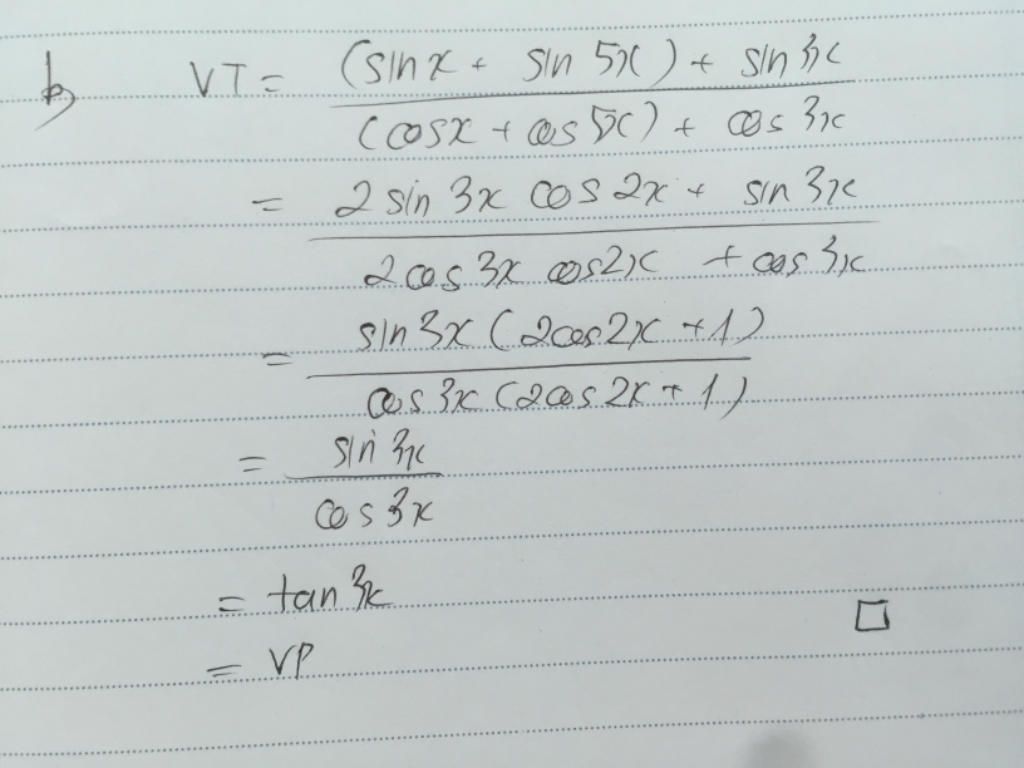 b) VT = (sin x + sin 5x) + sin 3x
(cos x + cos 5x) + cos 3x
= 2 sin 3x cos 2x + sin 3x
2 cos 3x cos 2x + cos 3x
= sin 3x (2cos 2x + 1)
cos 3x (2cos 2x + 1)
= sin 3x
cos 3x
= tan 3x
= VP □